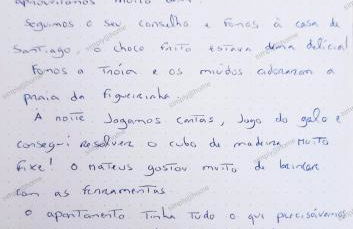 aproveitámos muito bem
Seguimos o seu conselho e fomos à casa de
Santiago, o choco frito estava deima delicia!
Fomos a Tróia e os miúdos adoraram a
praia da Figueirinha.
À noite Jogamos cartas, Jogo do galo e
consegui resolver o cubo de madeira. Muito
fixe! O Mateus gostou muito de brincar
com as ferramentas.
O apartamento Tinha Tudo o que precisávamos